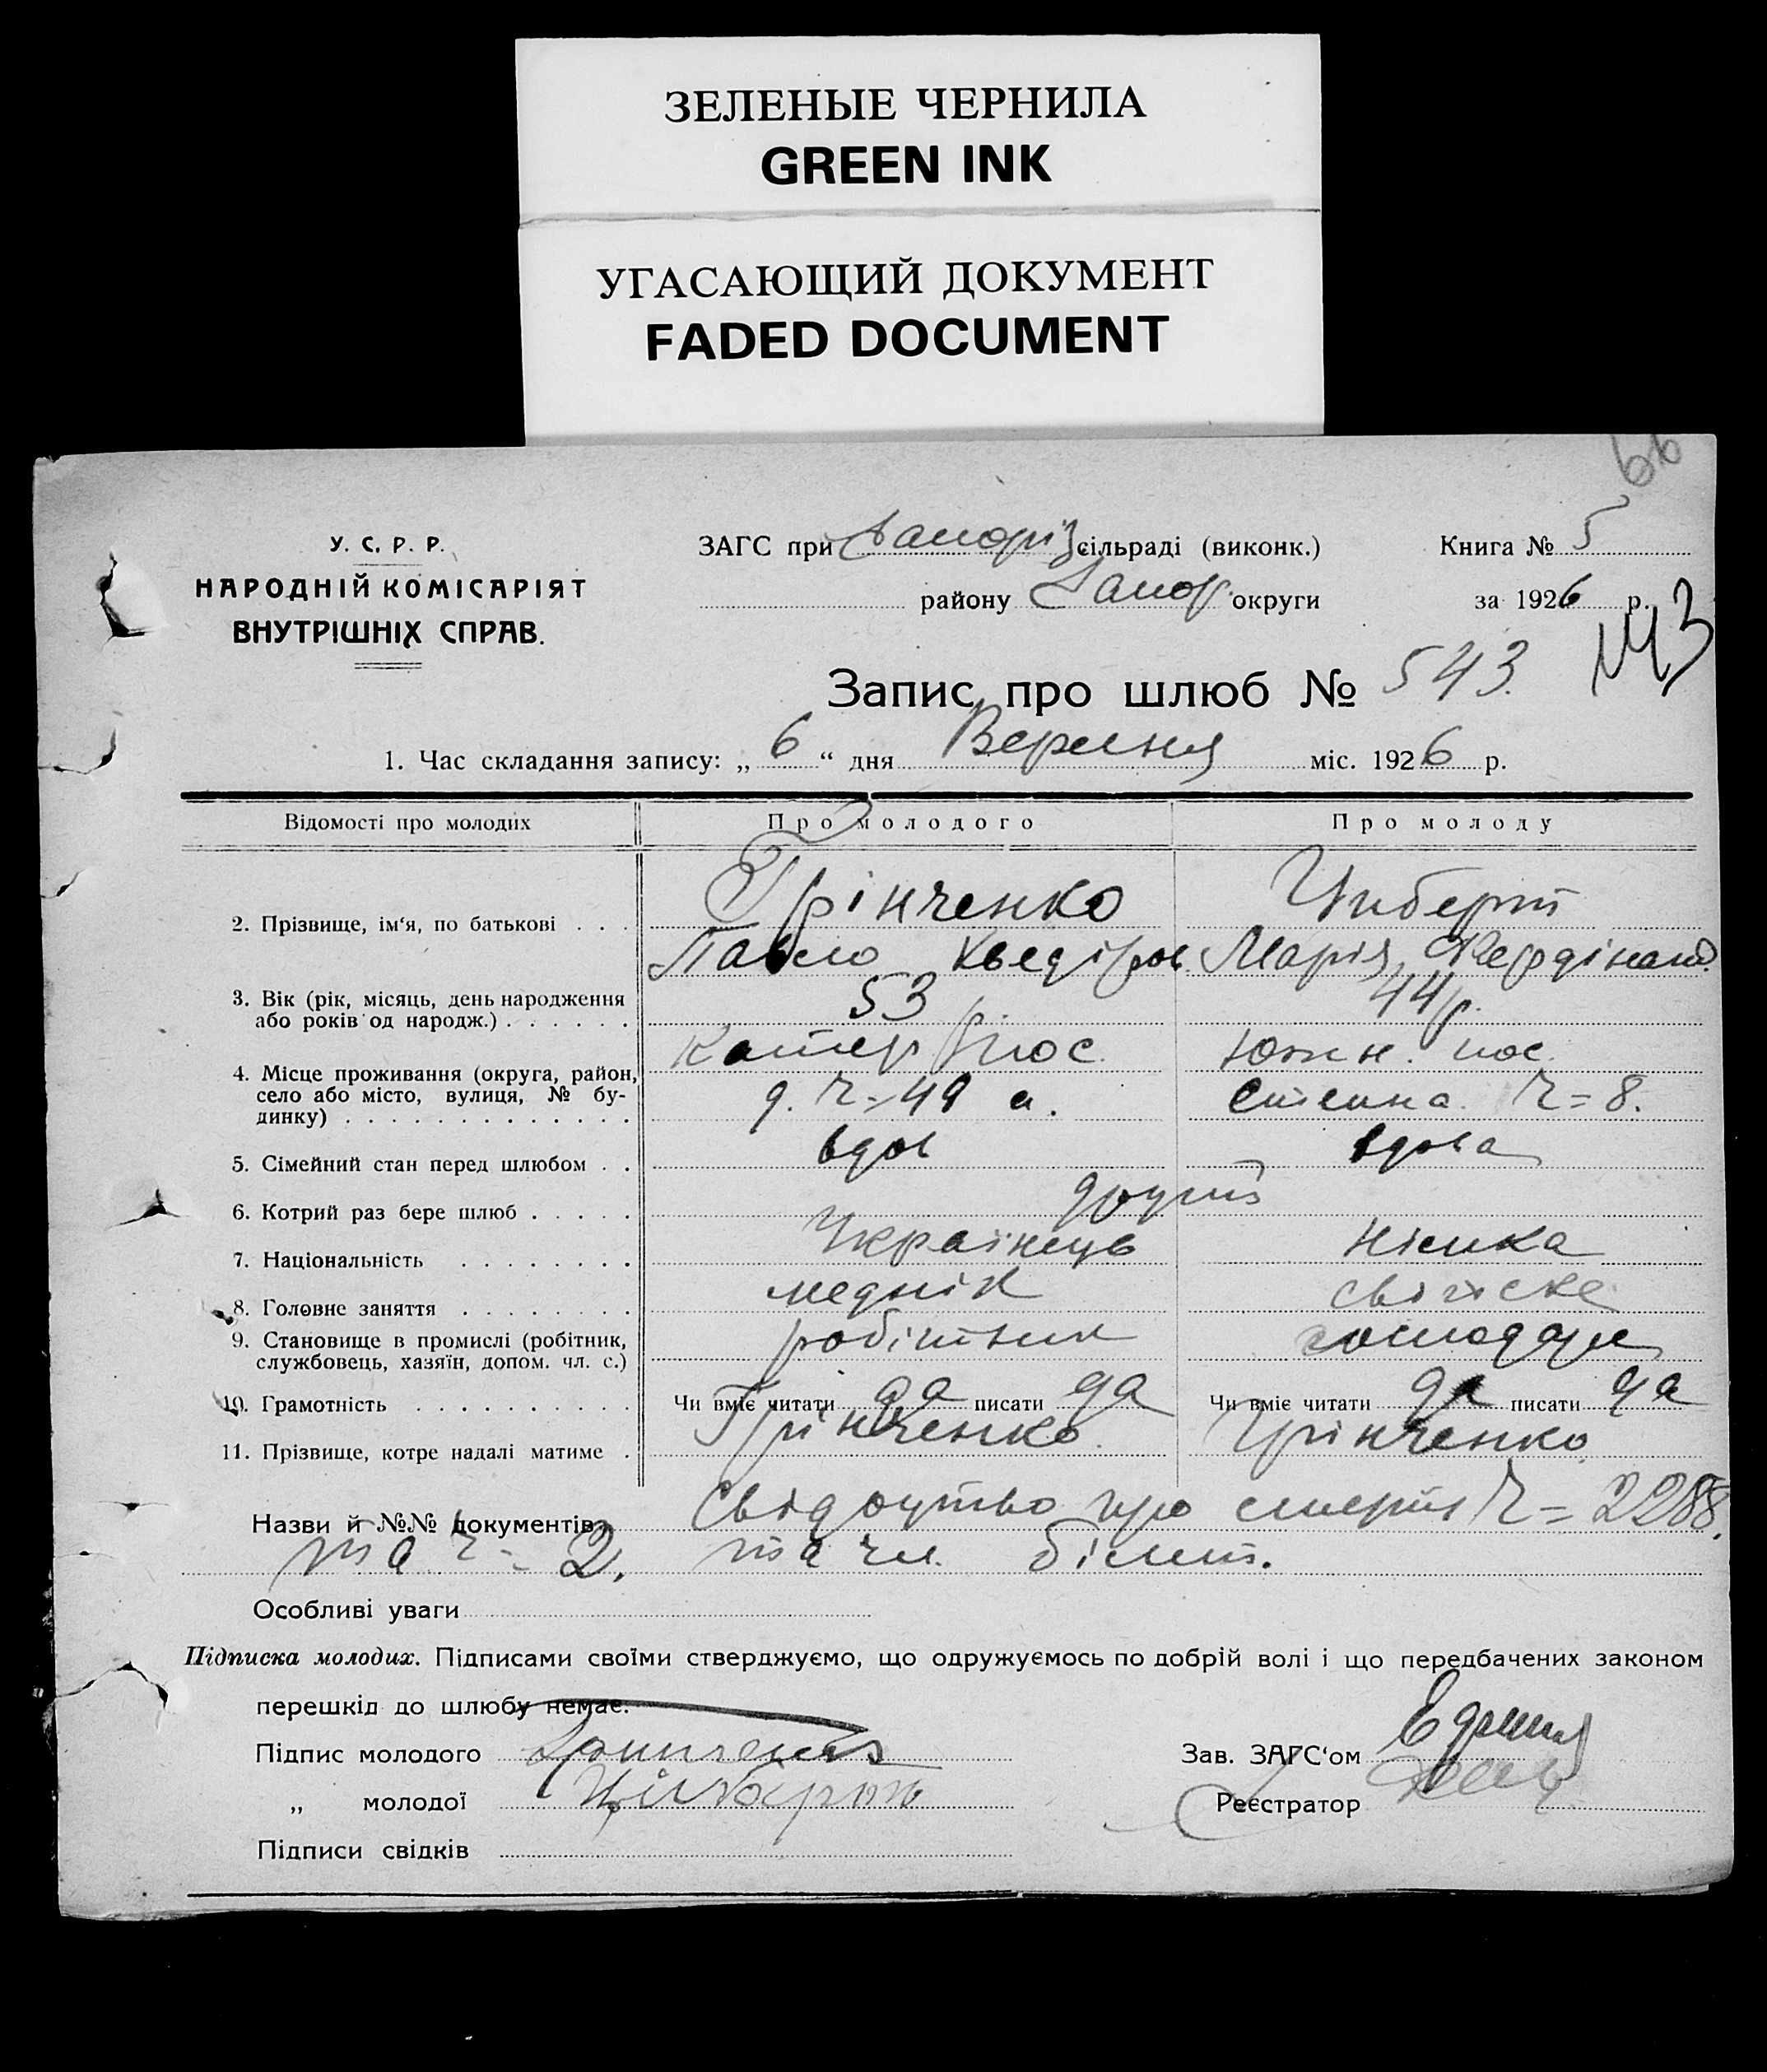 ЗЕЛЕНЫЕ ЧЕРНИЛА
GREEN INK
УГАСАЮЩИЙ ДОКУМЕНТ
FADED DOCUMENT
66
У. С. Р. Р.
НАРОДНІЙ КОМІСАРІЯТ
ВНУТРІШНІХ СПРАВ.
ЗАГС при Запоріз сільраді (виконк.)
району Запор. округи
Книга № 5
за 1926 р.
Запис про шлюб № 543.
1. Час складання запису: „ 6 “ дня Вересня міс. 1926 р.
Відомості про молодих Про молодого Про молоду
2. Прізвище, ім‘я, по батькові . . . Грінченко Циберт
Павло Марія Фердінанд.
3. Вік (рік, місяць, день народження або років од народж.) . . . . . . 53 р. 44 р.
4. Місце проживання (округа, район, село або місто, вулиця, № будинку) . . . . . . . . . . . . . Катер. пос. Южн. пос.
д. Ч = 49 а. Степна Ч = 8.
5. Сімейний стан перед шлюбом . . вдов вдова
6. Котрий раз бере шлюб . . . . .
7. Національність . . . . . . . . Українець Німка
8. Головне заняття . . . . . . . . меднік
9. Становище в промислі (робітник, службовець, хазяїн, допом. чл. с.) робітник
10. Грамотність . . . . . . . . . . Чи вміє читати да писати да Чи вміє читати да писати да
11. Прізвище, котре надалі матиме . Грінченко Грінченко
Назви й №№ документів: Свідоцтво про смерть Ч = 2288.
та Ч = 2. та чл. білет.
Особливі уваги
Підписка молодих. Підписами своїми стверджуємо, що одружуємось по добрій волі і що передбачених законом
перешкід до шлюбу немає.
Підпис молодого
„ молодої
Зав. ЗАГС‘ом
Реєстратор
Підписи свідків